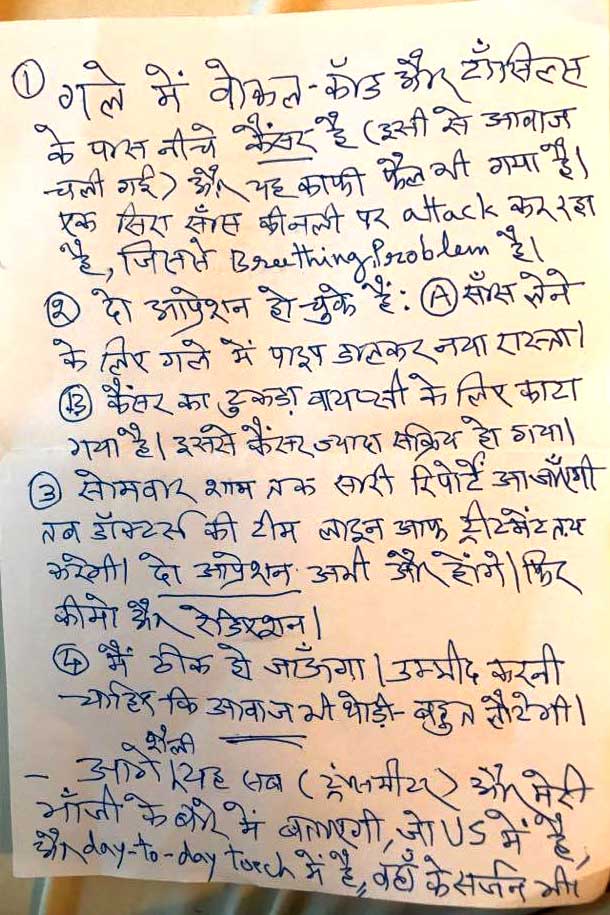 ① गले में वोकल-कॉर्ड और टॉंसिल्स
के पास नीचे कैंसर है (इसी से आवाज
चली गई) और यह काफी फैल भी गया है।
एक सिरा साँस की नली पर attack कर रहा
है, जिससे Breething Problem है।
② दो आप्रेशन हो चुके हैं: Ⓐ साँस लेने
के लिए गले में पाइप डालकर नया रास्ता।
Ⓑ कैंसर का टुकड़ा बायप्सी के लिए काटा
गया है। इससे कैंसर ज्यादा सक्रिय हो गया।
③ सोमवार शाम तक सारी रिपोर्टें आ जाएँगी
तब डॉक्टर्स की टीम लाइन आफ ट्रीटमेंट तय
करेगी। दो आप्रेशन अभी और होंगे। फिर
कीमो और रेडिएशन।
④ मैं ठीक हो जाऊँगा। उम्मीद करनी
चाहिए कि आवाज भी थोड़ी-बहुत लौटेगी।
शैली
- आगे यह सब और मेरी
भाँजी के बारे में बताएगी, जो US में है,
और day-to-day touch में है, वहाँ के सर्जन भी